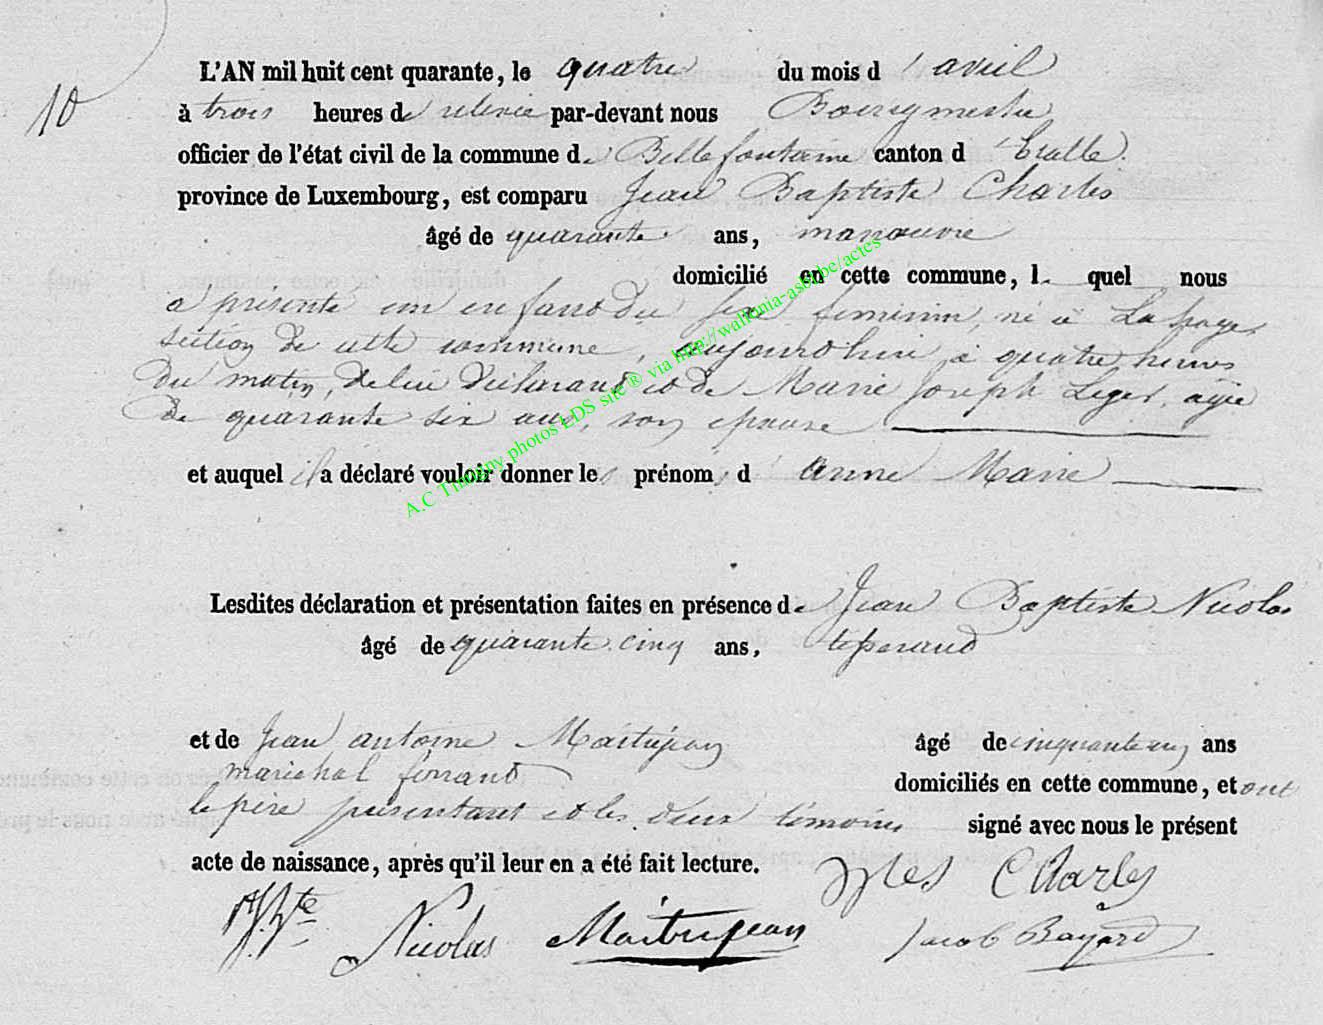 10
L'AN mil huit cent quarante, le quatre du mois d'avril
à trois heures de relevée par-devant nous Bourgmestre
officier de l'état civil de la commune de Bellefontaine canton d'Etalle
province de Luxembourg, est comparu Jean Baptiste Charles
âgé de quarante ans, manoeuvre
domicilié en cette commune, le quel nous
a présenté un enfant du sexe féminin, né à Lahage
section de cette commune, aujourdhui à quatre heures
du matin, de lui déclarant et de Marie Joseph Leger, agée
de quarante six ans, son epouse
et auquel il a déclaré vouloir donner les prénoms d'Anne Marie
Lesdites déclaration et présentation faites en présence de Jean Baptiste Nicolas
âgé de quarante cinq ans, tisserand
et de Jean antoine Maitrejean âgé de cinquante un ans
maréchal ferrant domiciliés en cette commune, et ont
le père présentant et les deux témoins signé avec nous le présent
acte de naissance, après qu'il leur en a été fait lecture.
Charles
J. Bte Nicolas Maitrejean Jacob Bayard
A.C Tintigny photos LDS site ® via http://wallonia-asbl.be/actes